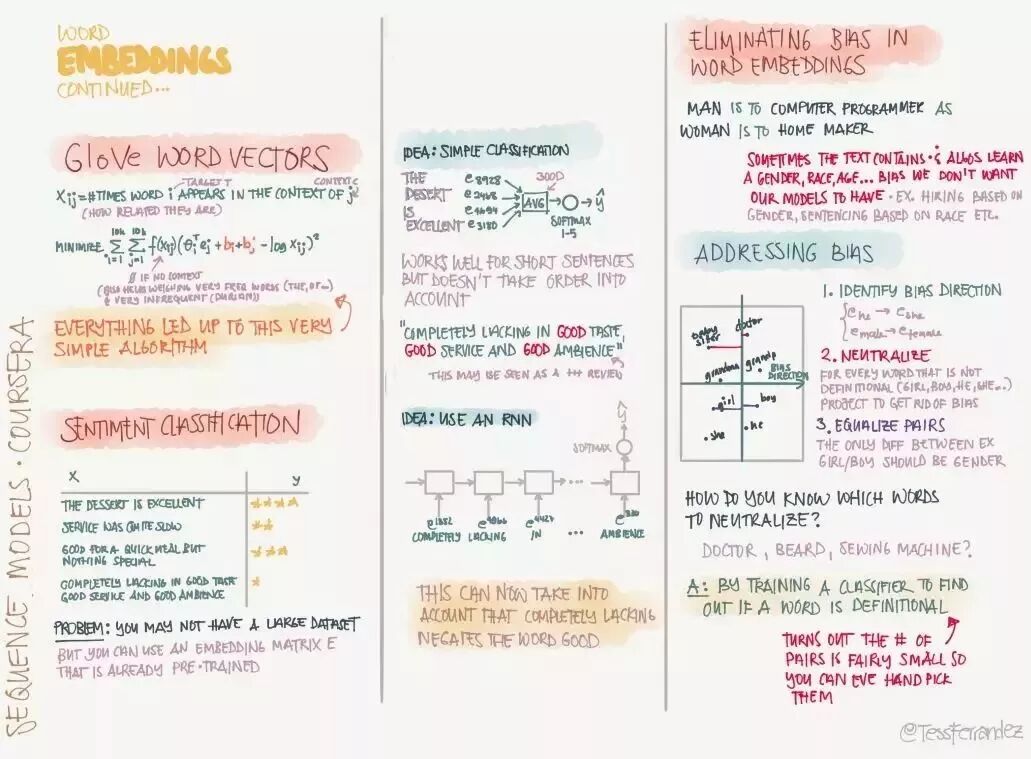 WORD
EMBEDDINGS
CONTINUED...
GloVe WORD VECTORS
TARGET T
CONTEXT C
Xij = # TIMES WORD i APPEARS IN THE CONTEXT OF j
(HOW RELATED THEY ARE)
MINIMIZE 10k Σ i=1 10k Σ j=1 f(Xij)(θiᵀej + bi + bj' - log Xij)²
∅ IF NO CONTEXT
& VERY INFREQUENT (DURIAN))
EVERYTHING LED UP TO THIS VERY
SIMPLE ALGORITHM
SENTIMENT CLASSIFICATION
X y
THE DESSERT IS EXCELLENT ★★★★
SERVICE WAS QUITE SLOW ★★
GOOD FOR A QUICK MEAL BUT ★★★
NOTHING SPECIAL
COMPLETELY LACKING IN GOOD TASTE ★
GOOD SERVICE AND GOOD AMBIENCE
PROBLEM: YOU MAY NOT HAVE A LARGE DATASET
BUT YOU CAN USE AN EMBEDDING MATRIX E
THAT IS ALREADY PRE-TRAINED
SEQUENCE MODELS · COURSERA
IDEA: SIMPLE CLASSIFICATION
THE e8928
DESERT e2468
IS e4694
EXCELLENT e3180
AVG
300D
ŷ
SOFTMAX
1-5
WORKS WELL FOR SHORT SENTENCES
BUT DOESN'T TAKE ORDER INTO
ACCOUNT
"COMPLETELY LACKING IN GOOD TASTE,
GOOD SERVICE AND GOOD AMBIENCE"
THIS MAY BE SEEN AS A +++ REVIEW
IDEA: USE AN RNN
ŷ
SOFTMAX
...
e1852 e4966 e4427 e330
COMPLETELY LACKING IN ... AMBIENCE
THIS CAN NOW TAKE INTO
ACCOUNT THAT COMPLETELY LACKING
NEGATES THE WORD GOOD
ELIMINATING BIAS IN
WORD EMBEDDINGS
MAN IS TO COMPUTER PROGRAMMER AS
WOMAN IS TO HOME MAKER
SOMETIMES THE TEXT CONTAINS · & ALGOS LEARN
A GENDER, RACE, AGE... BIAS WE DON'T WANT
OUR MODELS TO HAVE · EX. HIRING BASED ON
GENDER, SENTENCING BASED ON RACE ETC.
ADDRESSING BIAS
baby
sitter
doctor
grandma
grandp
BIAS
DIRECTION
girl
boy
she
he
1. IDENTIFY BIAS DIRECTION
ehe → eshe
emale → efemale
2. NEUTRALIZE
FOR EVERY WORD THAT IS NOT
DEFINITIONAL (GIRL, BOY, HE, SHE...)
PROJECT TO GET RID OF BIAS
3. EQUALIZE PAIRS
THE ONLY DIFF BETWEEN EX
GIRL/BOY SHOULD BE GENDER
HOW DO YOU KNOW WHICH WORDS
TO NEUTRALIZE?
DOCTOR, BEARD, SEWING MACHINE?
A: BY TRAINING A CLASSIFIER TO FIND
OUT IF A WORD IS DEFINITIONAL
TURNS OUT THE # OF
PAIRS IS FAIRLY SMALL SO
YOU CAN EVE HAND PICK
THEM
@TessFerrandez